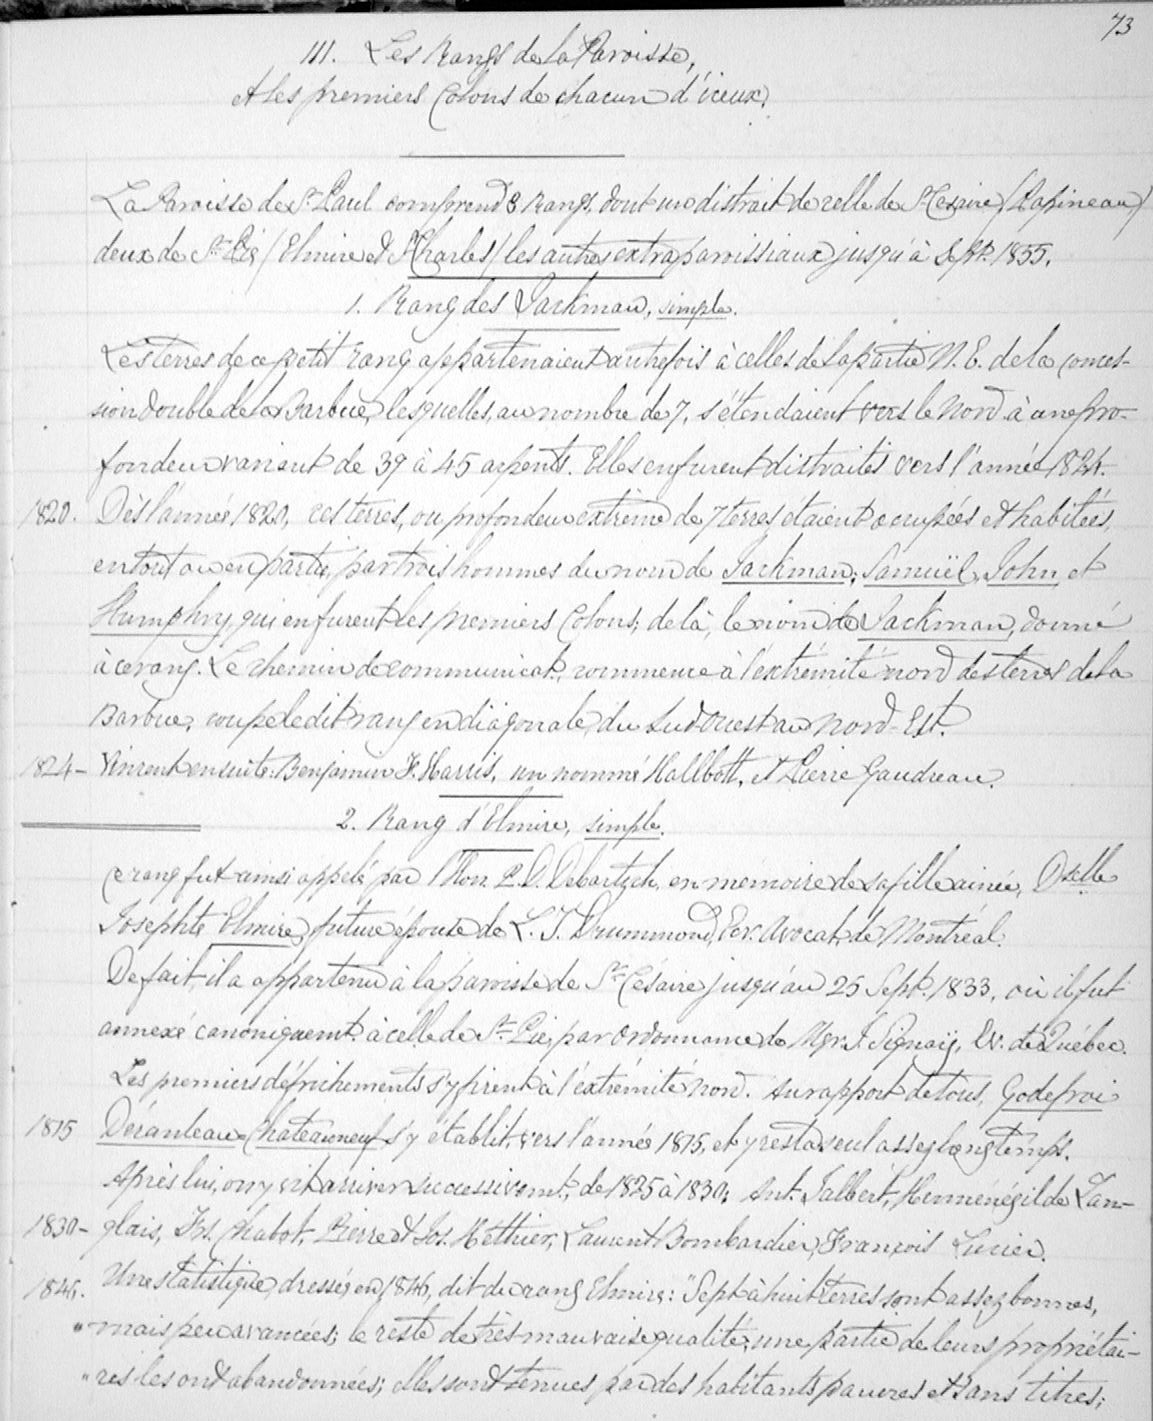 73
III. Les Rangs de la Paroisse,
et les premiers Colons de chacun d'iceux.
La Paroisse de St Paul comprend 8 Rangs, dont un distrait de celle de St Césaire (Papineau)
deux de St Pie (Elmire et St Charles) les autres extraparoissiaux jusqu'à Sept. 1855.
1. Rang des Jackman, simple.
Les terres de ce petit rang appartenaient autrefois à celles de la partie N. E. de la conces-
sion double de la Barbue, lesquelles, au nombre de 7, s'étendaient vers le Nord à une pro-
fondeur variant de 39 à 45 arpents. Elles en furent distraites vers l'année 1824.
1820. Dès l'année 1820, ces terres, ou profondeur extrême de 7 terres étaient occupées et habitées,
en tout ou en partie, par trois hommes du nom de Jackman; Samuël, John, et
Humphry, qui en furent les premiers Colons; de là, le nom de Jackman, donné
à ce rang. Le chemin de communicat. commence à l'extrémité nord des terres de la
Barbue, coupe ledit rang en diagonale, du Sud-Ouest au Nord-Est.
1824 - Vinrent ensuite: Benjamin F. Harris, un nommé Hallbott, et Pierre Gaudreau.
2. Rang d'Elmire, simple.
Ce rang fut ainsi appelé par l'Hon. P. D. Debartzch, en mémoire de sa fille ainée, Dselle
Josephte Elmire, future épouse de L. T. Drummond, Ecr. Avocat, de Montréal.
De fait, il a appartenu à la paroisse de St Césaire jusqu'au 25 Sept. 1833, où il fut
annexé canoniquemt. à celle de St Pie, par Ordonnance de Mgr. J. Signaÿ, Ev. de Québec.
Les premiers défrichements s'y firent à l'extrémité nord. Au rapport de tous, Godefroi
1815 Déranleau-Chateauneuf s'y établit, vers l'année 1815, et y resta seul assez longtemps.
Après lui, on y vit arriver successivemt., de 1825 à 1830; Ant. Jalbert, Herménégilde Lan-
1830 - glais, Frs. Chabot, Pierre et Jos. Methier, Laurent Bombardier, François Lucier.
1846. Une statistique, dressée en 1846, dit du rang Elmire: "Sept à huit terres sont assez bonnes,
" mais peu avancées; le reste de très-mauvaise qualité; une partie de leurs propriétai-
" res les ont abandonnées; elles sont tenues par des habitants pauvres et sans titres;